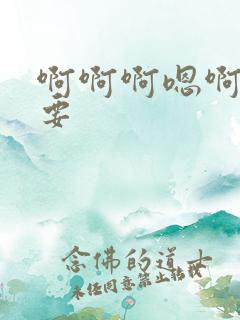 啊啊啊嗯啊
要
念佛的道士
未经同意禁止转载